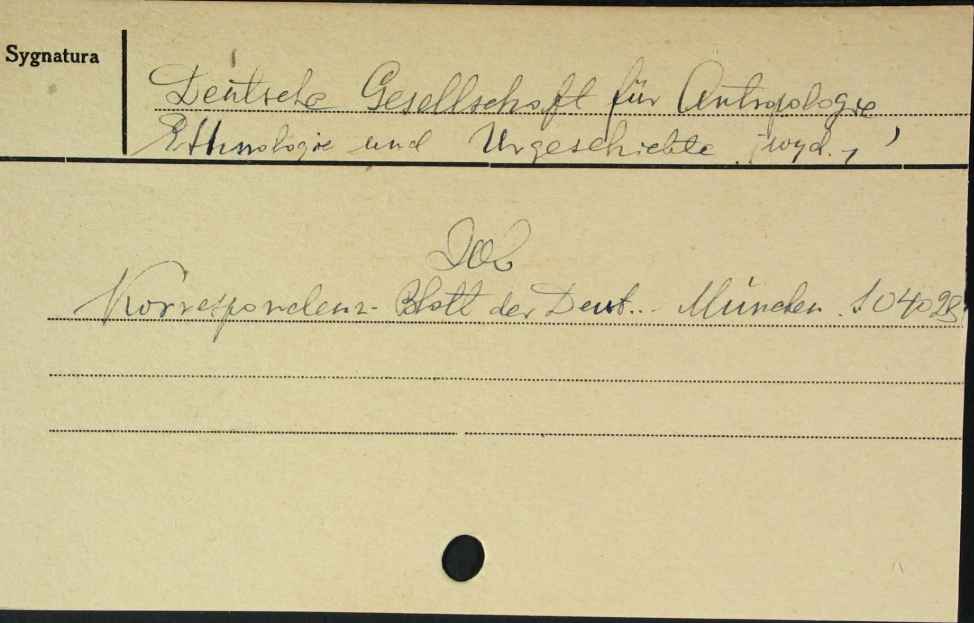 Sygnatura
Deutsche Gesellschaft für Antropologie
Ethnologie und Urgeschichte, wyd.,
Korrespondenz-Blatt der Deut... München. S 04028